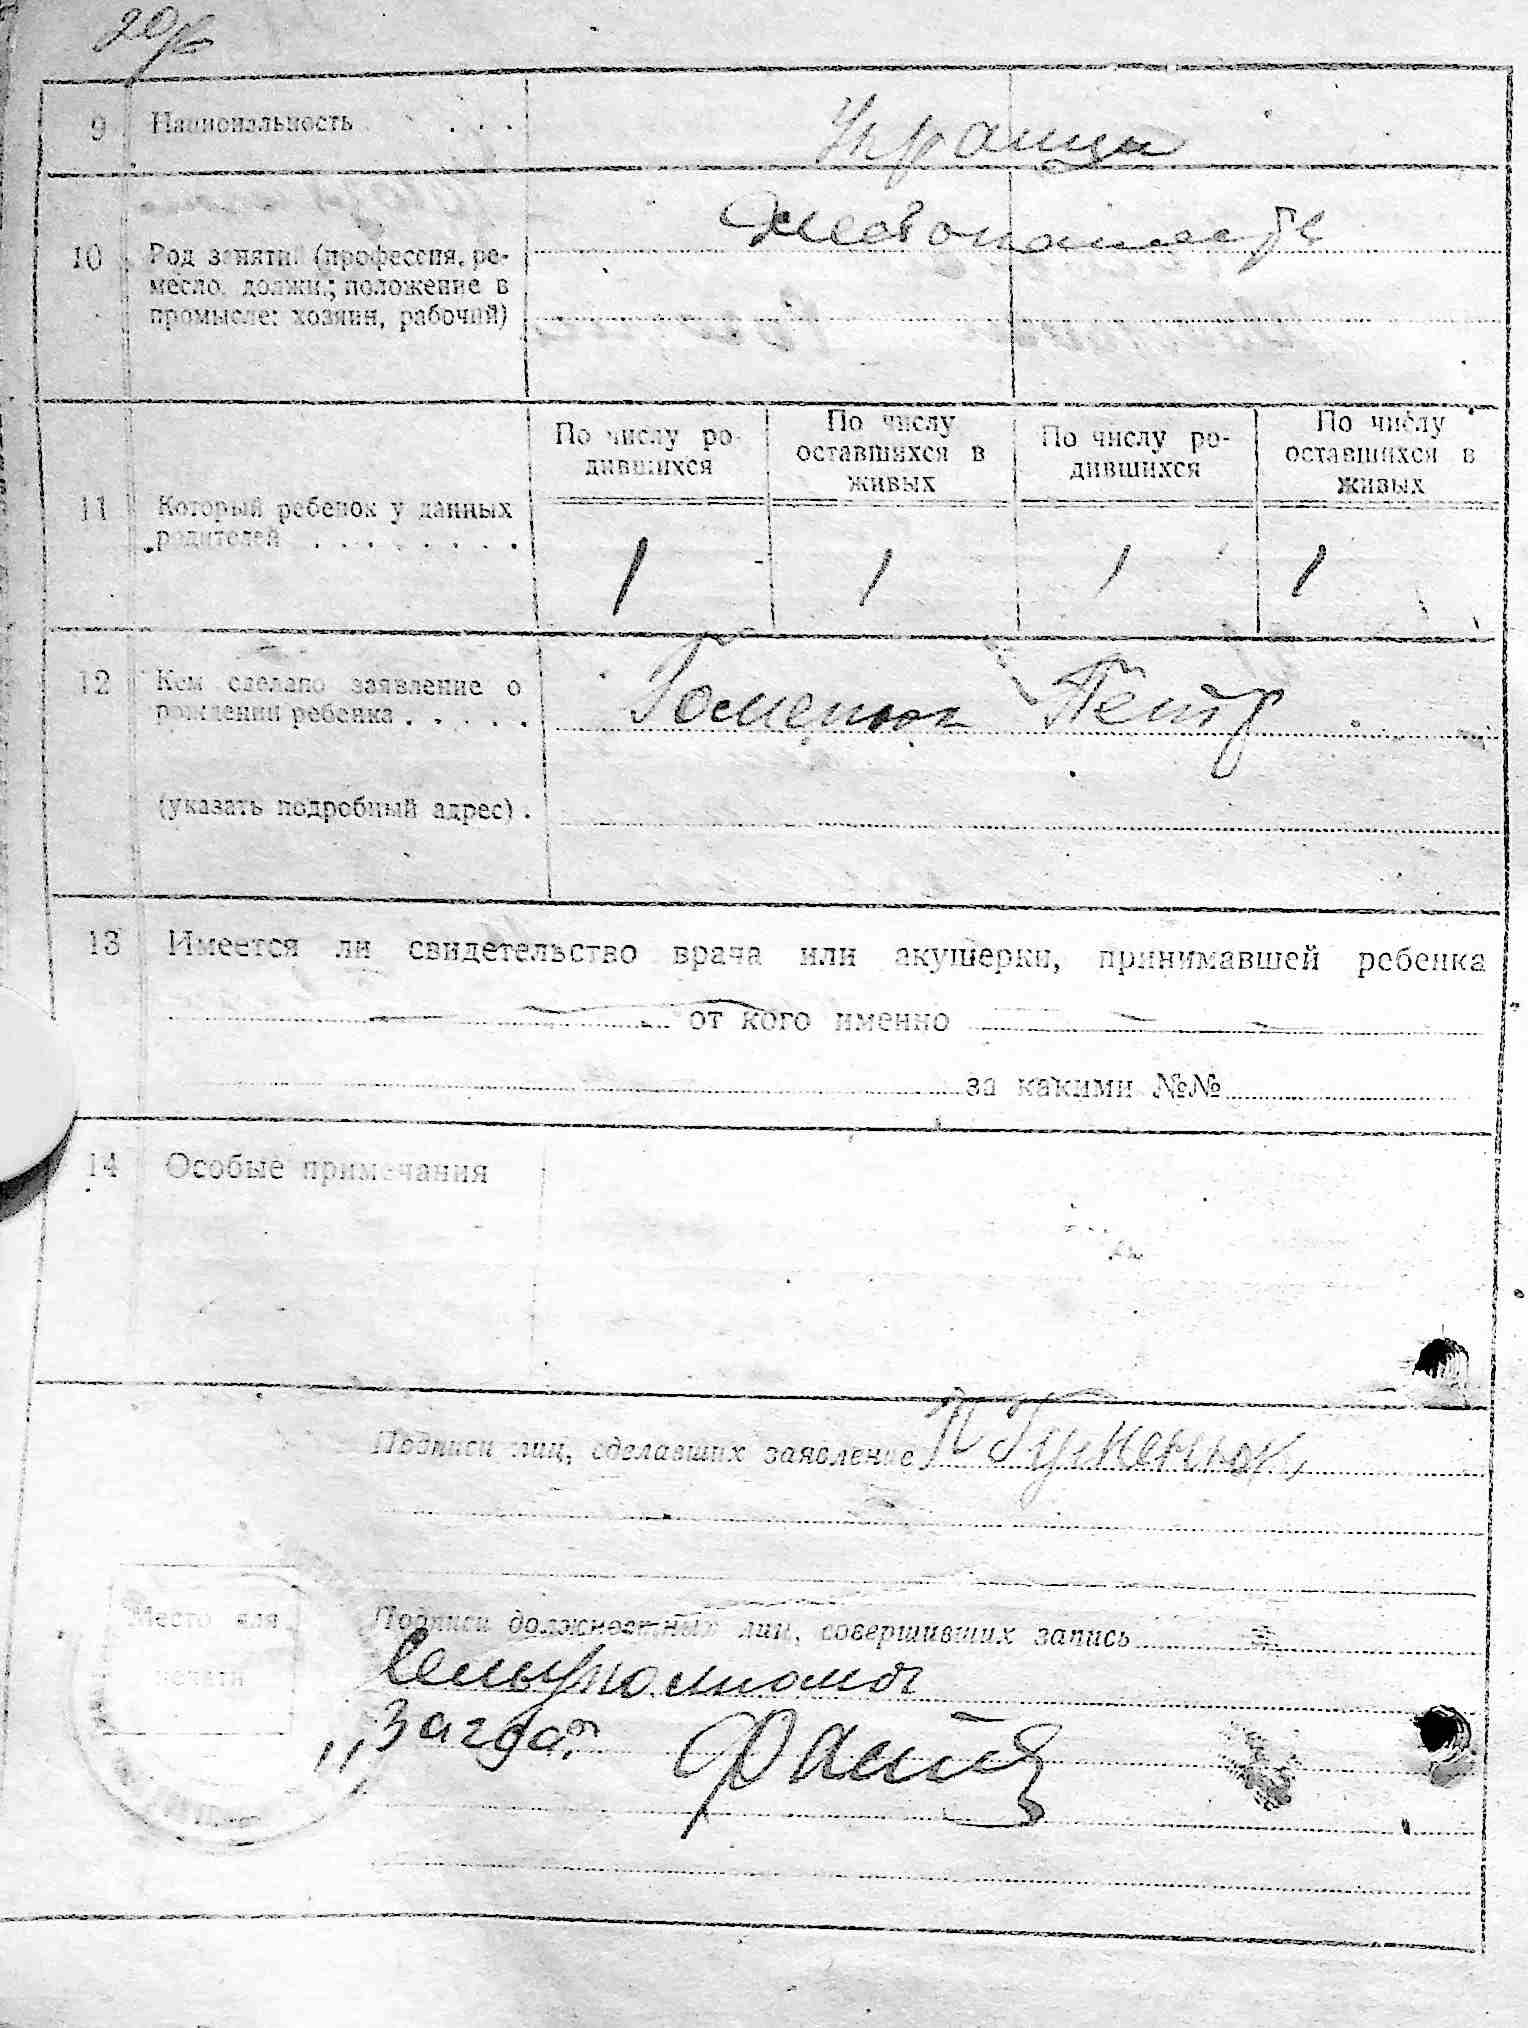 9 Национальность . . . Украинцы
10 Род занятий (профессия, ре-
месло, должн.; положение в
промысле: хозяин, рабочий)
По числу ро-
дившихся
По числу
оставшихся в
живых
По числу ро-
дившихся
По числу
оставшихся в
живых
11 Который ребенок у данных
родителей . . . . . . . .
1 1 1 1
12 Кем сделано заявление о
рождении ребенка . . . . . Гоменюк Петр
(указать подробный адрес) .
13 Имеется ли свидетельство врача или акушерки, принимавшей ребенка
от кого именно
за какими №№
14 Особые примечания
Подписи лиц, сделавших заявление П Гуменюк
Место для
печати
Подписи должностных лиц, совершивших запись